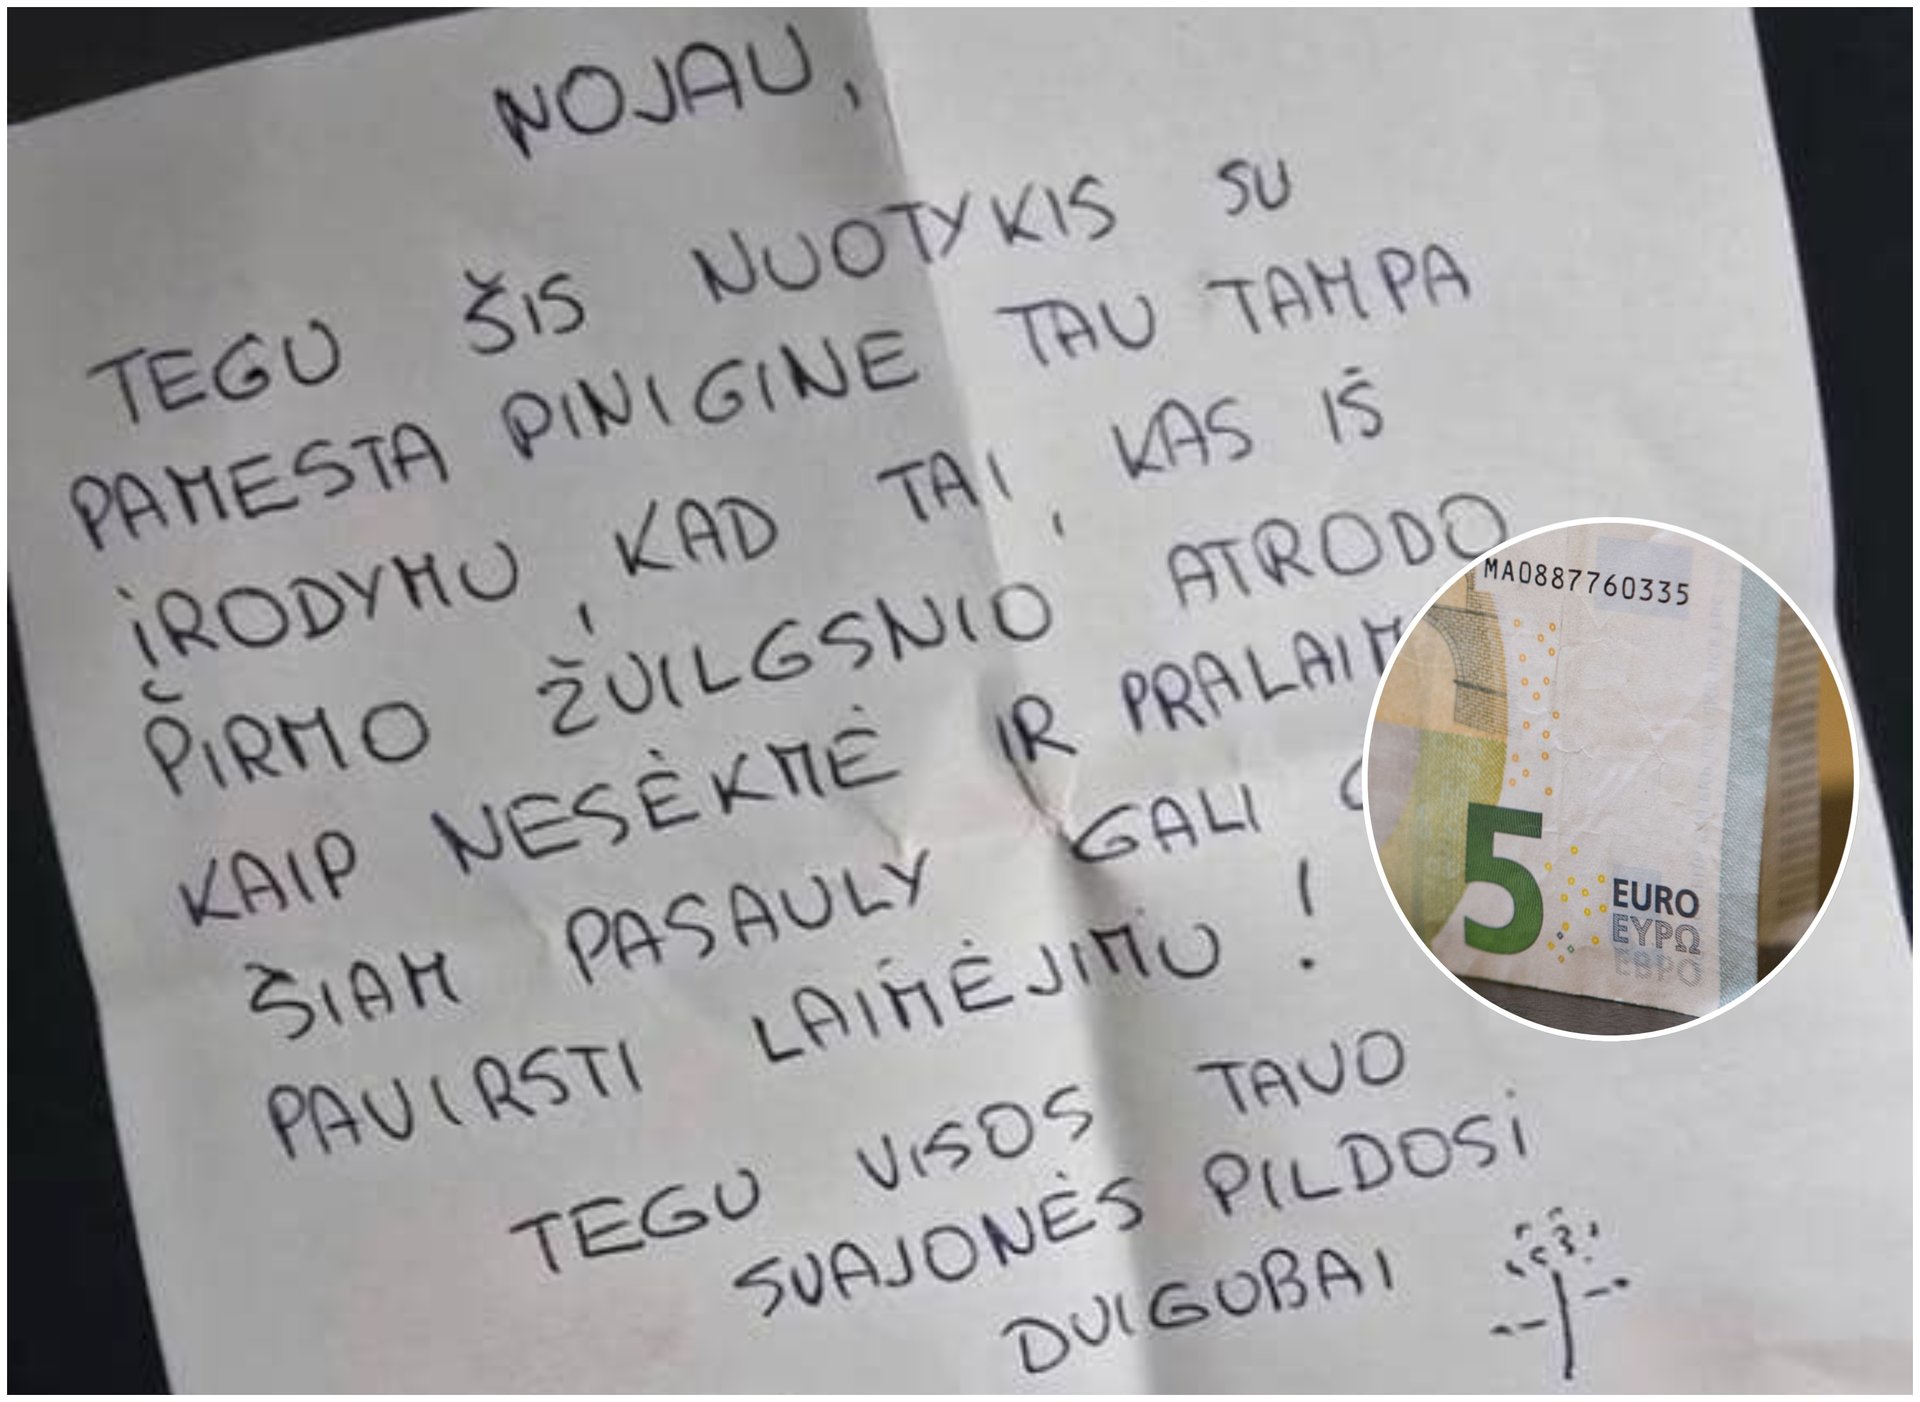 NOJAU,
TEGU ŠIS NUOTYKIS SU
PAMESTA PINIGINE TAU TAMPA
ĮRODYMU, KAD TAI, KAS IŠ
PIRMO ŽVILGSNIO ATRODO
KAIP NESĖKMĖ IR
ŠIAM PASAULY GALI
PAVIRSTI LAIMĖJIMU!
TEGU VISOS TAVO
SVAJONĖS PILDOSI
DVIGUBAI
MA0887760335
5
EURO
ΕΥΡΩ
ЕВРО